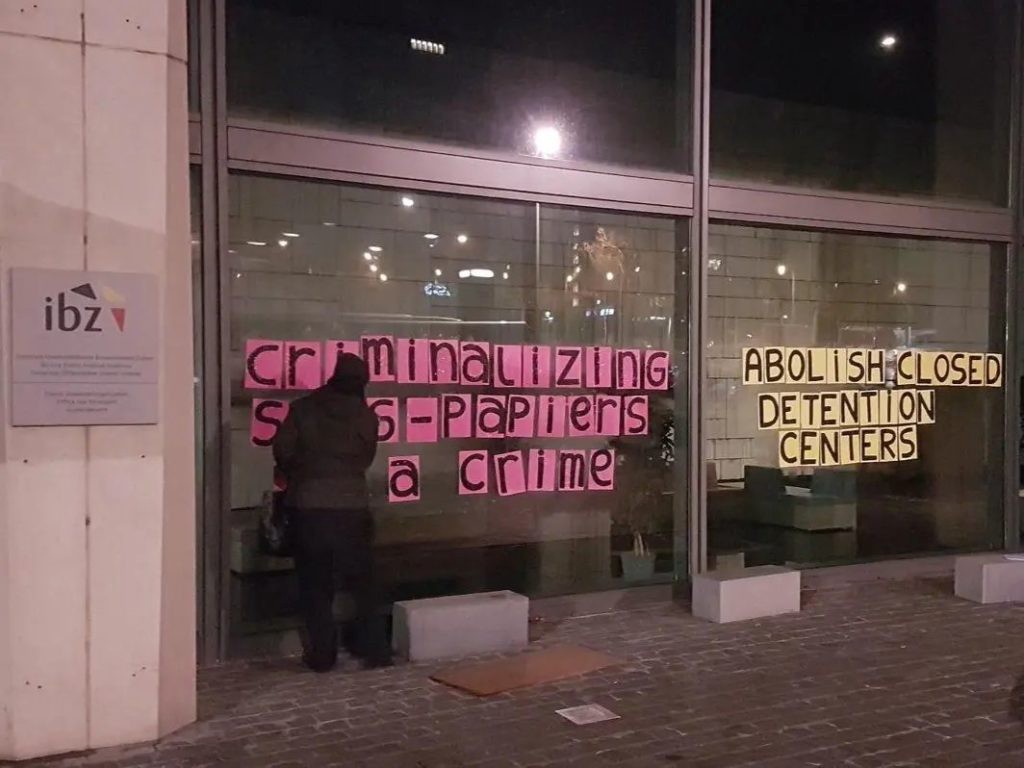 ibz
criminalizing
sans-papiers
a crime
ABOLISH CLOSED
DETENTION
CENTERS